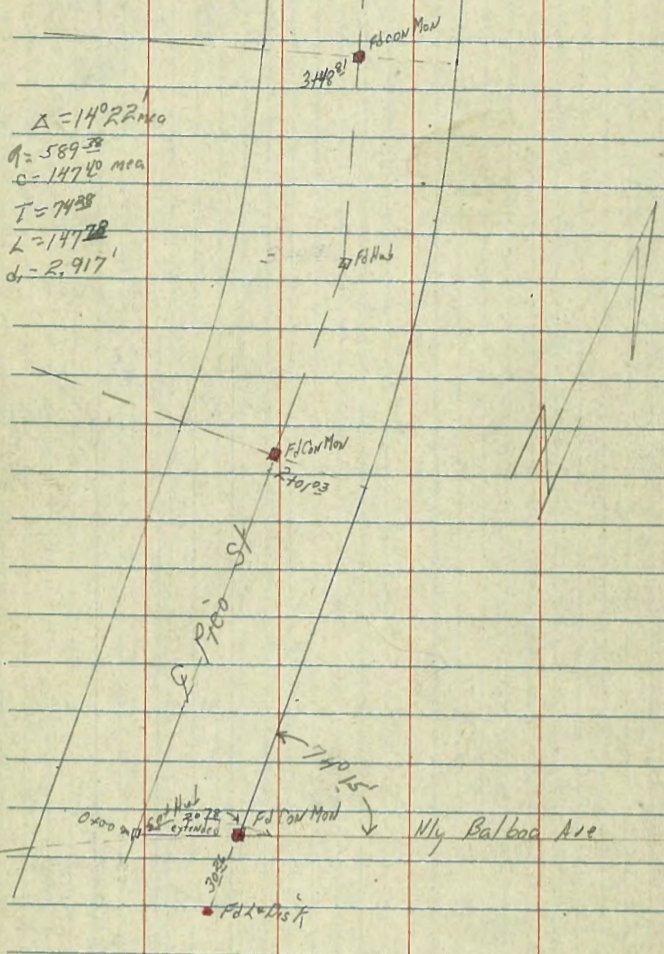 Fd Con Mon
3+48 81
Δ = 14° 22' mea
R = 589 38
C = 147 40 mea
T = 74 38
L = 147 78
d1 = 2.917'
Fd Hub
Fd Con Mon
2+01 03
℄ Pico St
74° 15'
Fd Hub
0+00
20 78
extended
Fd Con Mon
Nly Balboa Ave
30 26
Fd L & Disk